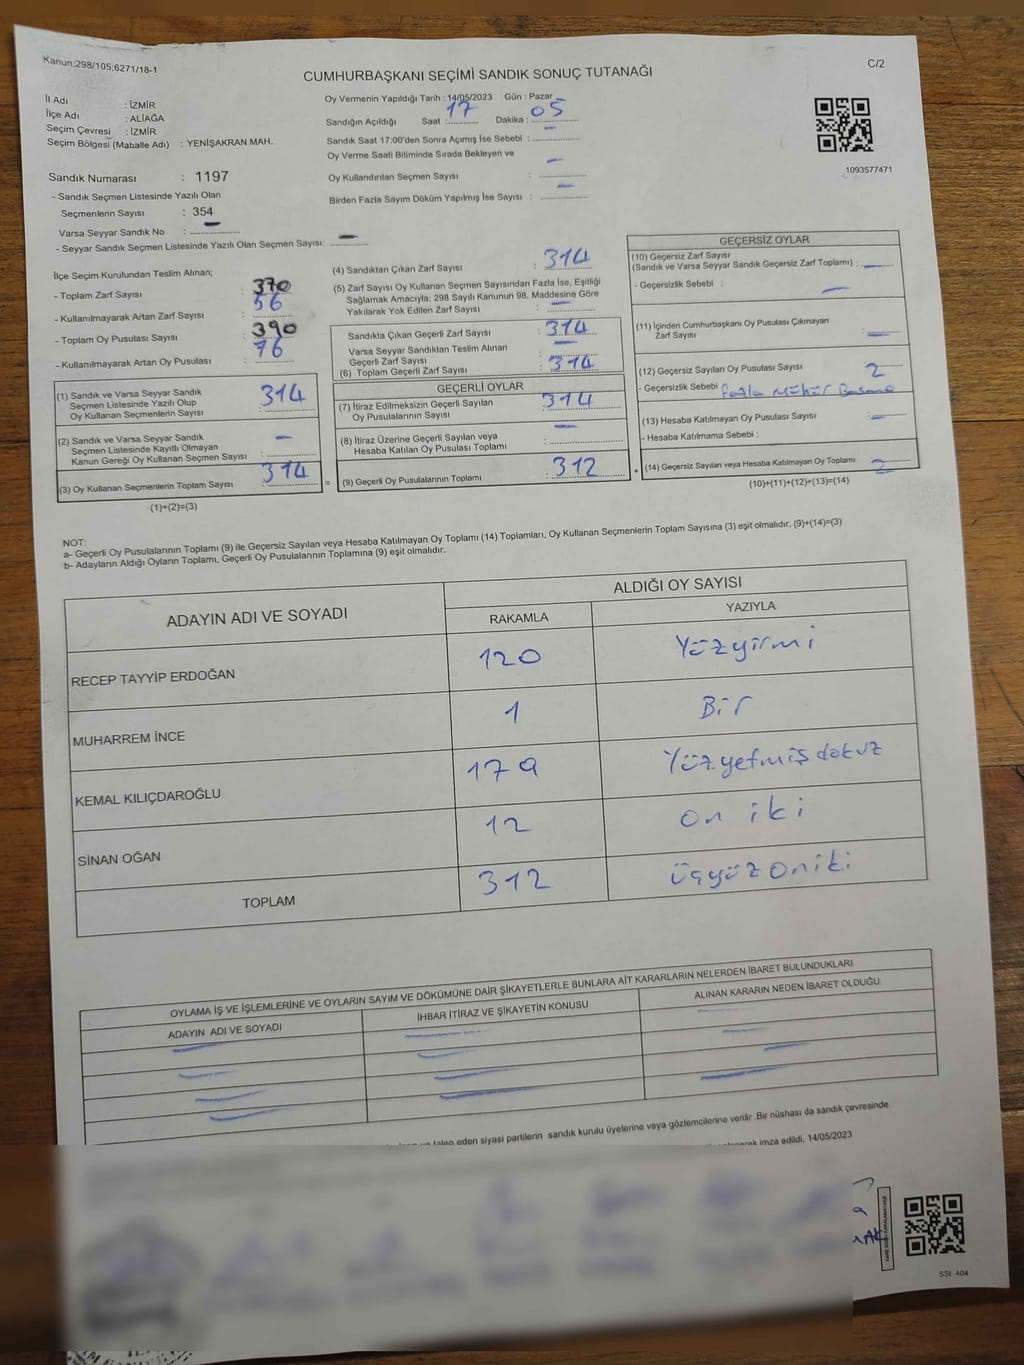 Kanun;298/105;6271/18-1
C/2
CUMHURBAŞKANI SEÇİMİ SANDIK SONUÇ TUTANAĞI
İl Adı : İZMİR
İlçe Adı : ALİAĞA
Seçim Çevresi : İZMİR
Seçim Bölgesi (Mahalle Adı) : YENİŞAKRAN MAH.
Sandık Numarası : 1197
- Sandık Seçmen Listesinde Yazılı Olan
Seçmenlerin Sayısı : 354
Varsa Seyyar Sandık No : -
- Seyyar Sandık Seçmen Listesinde Yazılı Olan Seçmen Sayısı: -
Oy Vermenin Yapıldığı Tarih : 14/05/2023 Gün : Pazar
Sandığın Açıldığı Saat : 17 Dakika : 05
Sandık Saat 17:00'den Sonra Açımış İse Sebebi : -
Oy Verme Saati Bitiminde Sırada Bekleyen ve
Oy Kullandırılan Seçmen Sayısı : -
Birden Fazla Sayım Döküm Yapılmış İse Sayısı : -
1093577471
İlçe Seçim Kurulundan Teslim Alınan;
- Toplam Zarf Sayısı : 370
- Kullanılmayarak Artan Zarf Sayısı : 56
- Toplam Oy Pusulası Sayısı : 390
- Kullanılmayarak Artan Oy Pusulası : 76
(1) Sandık ve Varsa Seyyar Sandık
Seçmen Listesinde Yazılı Olup
Oy Kullanan Seçmenlerin Sayısı : 314
(2) Sandık ve Varsa Seyyar Sandık
Seçmen Listesinde Kayıtlı Olmayan
Kanun Gereği Oy Kullanan Seçmen Sayısı : -
(3) Oy Kullanan Seçmenlerin Toplam Sayısı : 314
(1)+(2)=(3)
(4) Sandıktan Çıkan Zarf Sayısı : 314
(5) Zarf Sayısı Oy Kullanan Seçmen Sayısından Fazla İse, Eşitliği
Sağlamak Amacıyla; 298 Sayılı Kanunun 98. Maddesine Göre
Yakılarak Yok Edilen Zarf Sayısı : -
Sandıkta Çıkan Geçerli Zarf Sayısı : 314
Varsa Seyyar Sandıktan Teslim Alınan
Geçerli Zarf Sayısı : -
(6) Toplam Geçerli Zarf Sayısı : 314
GEÇERLİ OYLAR
(7) İtiraz Edilmeksizin Geçerli Sayılan
Oy Pusulalarının Sayısı : 314
(8) İtiraz Üzerine Geçerli Sayılan veya
Hesaba Katılan Oy Pusulası Toplamı : -
= (9) Geçerli Oy Pusulalarının Toplamı : 312
GEÇERSİZ OYLAR
(10) Geçersiz Zarf Sayısı
(Sandık ve Varsa Seyyar Sandık Geçersiz Zarf Toplamı) : -
- Geçersizlik Sebebi : -
(11) İçinden Cumhurbaşkanı Oy Pusulası Çıkmayan
Zarf Sayısı : -
(12) Geçersiz Sayılan Oy Pusulası Sayısı : 2
- Geçersizlik Sebebi : Fazla Mühür Basma
(13) Hesaba Katılmayan Oy Pusulası Sayısı : -
- Hesaba Katılmama Sebebi :
+ (14) Geçersiz Sayılan veya Hesaba Katılmayan Oy Toplamı : 2
(10)+(11)+(12)+(13)=(14)
NOT:
a- Geçerli Oy Pusulalarının Toplamı (9) ile Geçersiz Sayılan veya Hesaba Katılmayan Oy Toplamı (14) Toplamları, Oy Kullanan Seçmenlerin Toplam Sayısına (3) eşit olmalıdır. (9)+(14)=(3)
b- Adayların Aldığı Oyların Toplamı, Geçerli Oy Pusulalarının Toplamına (9) eşit olmalıdır.
ADAYIN ADI VE SOYADI ALDIĞI OY SAYISI
RAKAMLA YAZIYLA
RECEP TAYYİP ERDOĞAN 120 Yüzyirmi
MUHARREM İNCE 1 Bir
KEMAL KILIÇDAROĞLU 179 Yüzyetmişdokuz
SİNAN OĞAN 12 on iki
TOPLAM 312 üçyüzoniki
OYLAMA İŞ VE İŞLEMLERİNE VE OYLARIN SAYIM VE DÖKÜMÜNE DAİR ŞİKAYETLERLE BUNLARA AİT KARARLARIN NELERDEN İBARET BULUNDUKLARI
ADAYIN ADI VE SOYADI İHBAR İTİRAZ VE ŞİKAYETİN KONUSU ALINAN KARARIN NEDEN İBARET OLDUĞU
talep eden siyasi partilerin sandık kurulu üyelerine veya gözlemcilerine verilir .Bir nüshası da sandık çevresinde
imza edildi. 14/05/2023
SSI 404